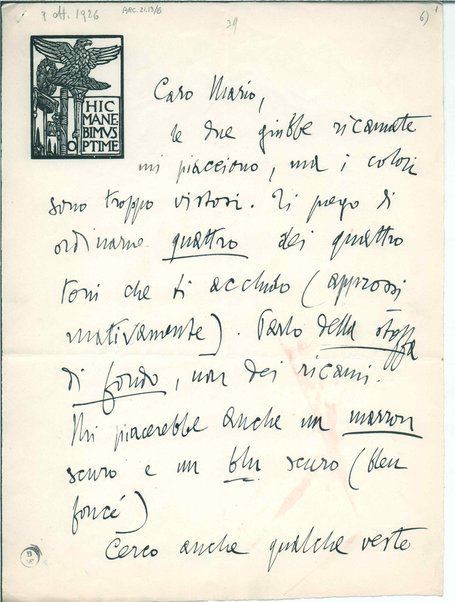 3 ott. 1926
ARC.21.13/6
29
6)
HIC
MANE
BIMVS
OPTIME
Caro Mario,
le due giubbe ricamate
mi piacciono, ma i colori
sono troppo vistosi. Ti prego di
ordinarne quattro dei quattro
toni che ti accludo (approssi
mativamente). Parlo della stoffa
di fondo, non dei ricami.
Mi piacerebbe anche un marron
scuro e un blu scuro (bleu
foncé)
Cerco anche qualche veste